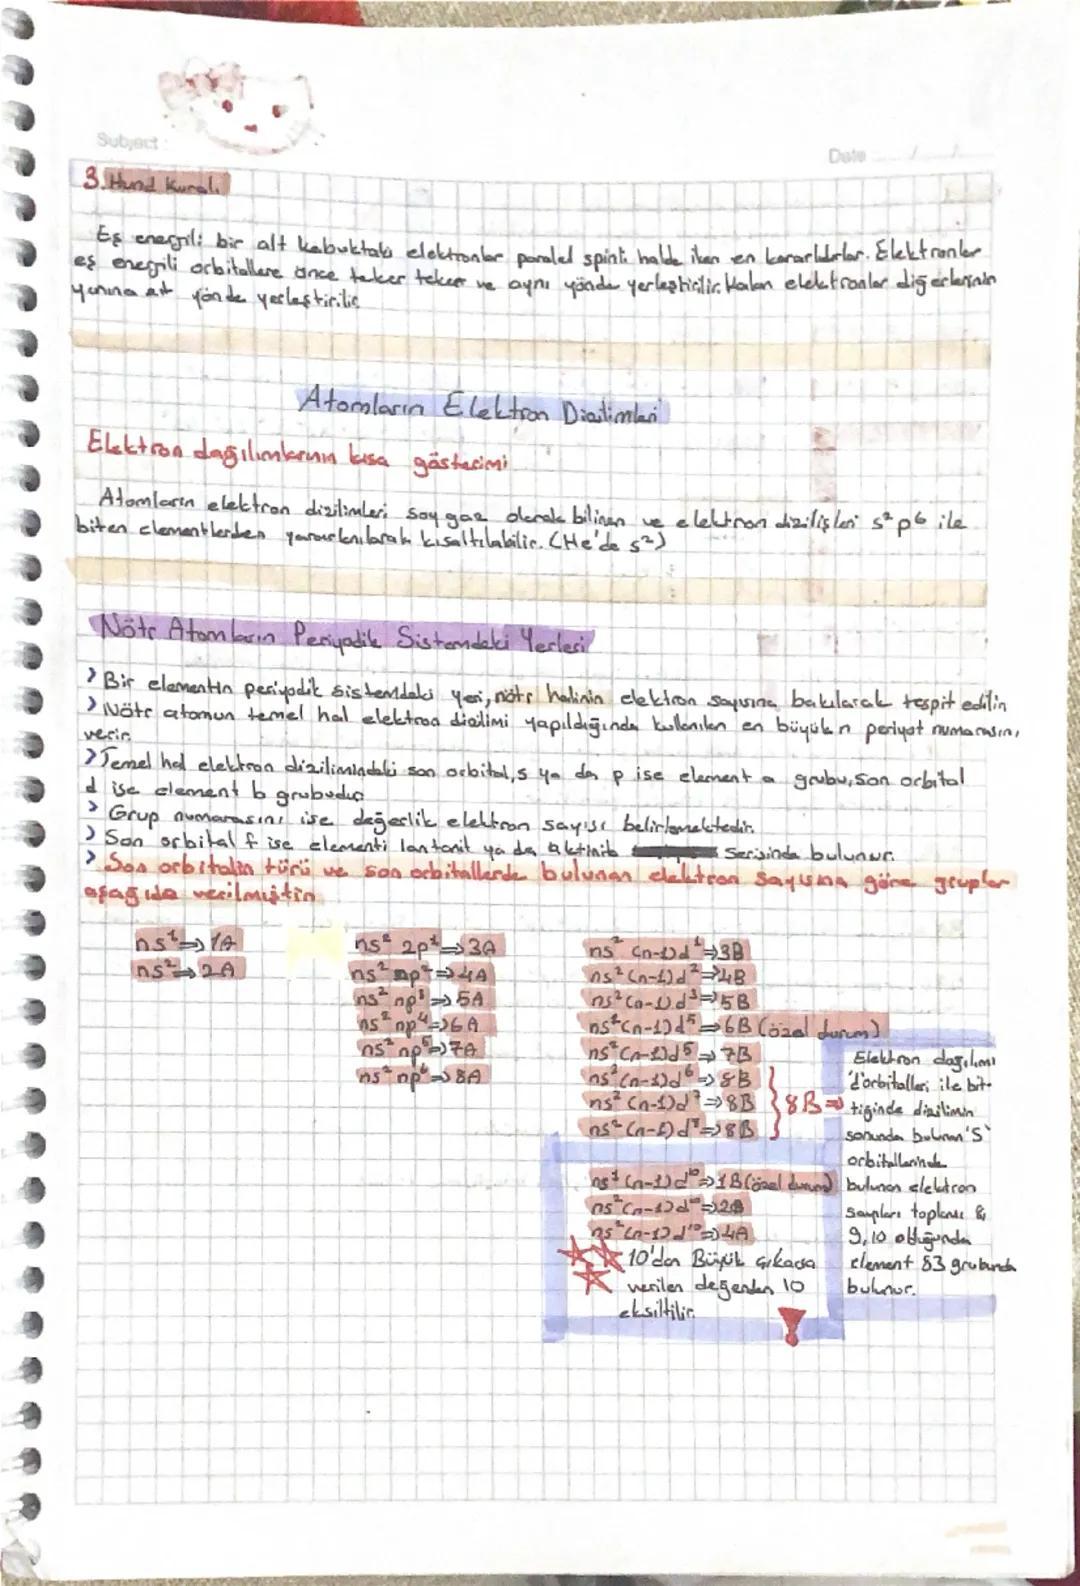 Subject:
Date ..../..../....
3. Hund Kuralı
Eş enerjili bir alt kabuktaki elektronlar paralel spinli halde iken en kararlıdırlar. Elektronlar
eş enerjili orbitallere önce teker teker ve aynı yönde yerleştirilir. Kalan elektronlar diğerlerinin
yanına zıt yönde yerleştirilir
Atomların Elektron Dizilimleri
Elektron dağılımlarının kısa gösterimi
Atomların elektron dizilimleri soy gaz olarak bilinen ve elektron dizilişleri s² p⁶ ile
biten elementlerden yararlanılarak kısaltılabilir. (He'de s²)
Nötr Atomların Periyodik Sistemdeki Yerleri
> Bir elementin periyodik sistemdeki yeri, nötr halinin elektron sayısına bakılarak tespit edilir
> Nötr atomun temel hal elektron dizilimi yapıldığında kullanılan en büyük n periyot numarasını
verir.
> Temel hal elektron dizilimindeki son orbital, s ya da p ise element a grubu, son orbital
d ise element b grubudur
> Grup numarasını ise değerlik elektron sayısı belirlemektedir.
> Son orbital f ise elementi lantanit ya da aktinit serisinde bulunur.
> Son orbitalin türü ve son orbitallerde bulunan elektron sayısına göre gruplar
aşağıda verilmiştir
ns¹ ⇒ 1A
ns² ⇒ 2A
ns² 2p¹ ⇒ 3A
ns² np² ⇒ 4A
ns² np³ ⇒ 5A
ns² np⁴ ⇒ 6A
ns² np⁵ ⇒ 7A
ns² np⁶ ⇒ 8A
ns² (n-1)d¹ ⇒ 3B
ns² (n-1)d² ⇒ 4B
ns² (n-1)d³ ⇒ 5B
ns¹ (n-1)d⁵ ⇒ 6B (özel durum)
ns² (n-1)d⁵ ⇒ 7B
ns² (n-1)d⁶ ⇒ 8B
ns² (n-1)d⁷ ⇒ 8B
ns² (n-1)d⁸ ⇒ 8B
} 8B ⇒
Elektron dağılımı
'd'orbitalleri ile bit-
tiğinde dizilimin
sonunda bulunan 'S'
orbitallerinde
bulunan elektron
sayıları toplamı 8,
9,10 olduğunda
element 8B grubunda
bulunur.
ns¹ (n-1)d¹⁰ ⇒ 1B (özel durum)
ns² (n-1)d¹⁰ ⇒ 2B
ns² (n-1)d¹⁰ ⇒ 4A
10'dan Büyük çıkarsa
verilen değerden 10
eksiltilir.